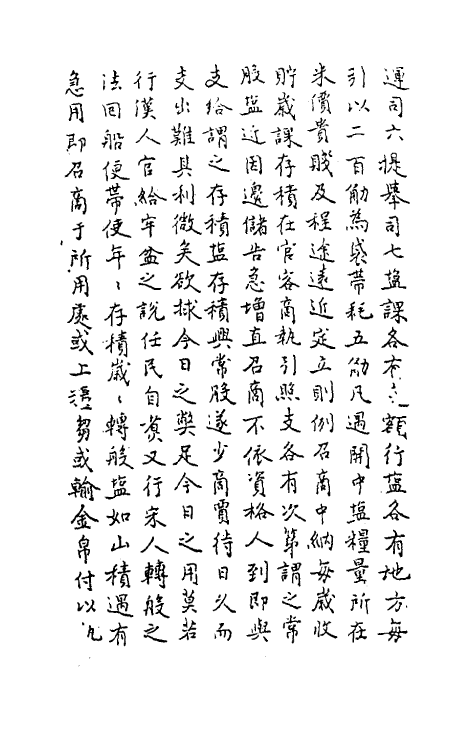 運司六提舉司七塩課各有定額行塩各有地方每
引以二百觔為袋帶耗五觔凡遇開中塩糧量所在
米價貴賤及程途遠近定立則例召商中納每歲收
貯歲課存積在官客商執引照支各有次第謂之常
股塩近因邊儲告急增直召商不依資格人到即與
支給謂之存積塩存積興常股遂少商賈待日久而
支出難其利微矣欲捄今日之弊足今日之用莫若
行漢人官給牢盆之說任民自煑又行宋人轉般之
法回船便帶使年〻存積歲〻轉般塩如山積遇有
急用即召商于所用處或上芻或輸金帛付以